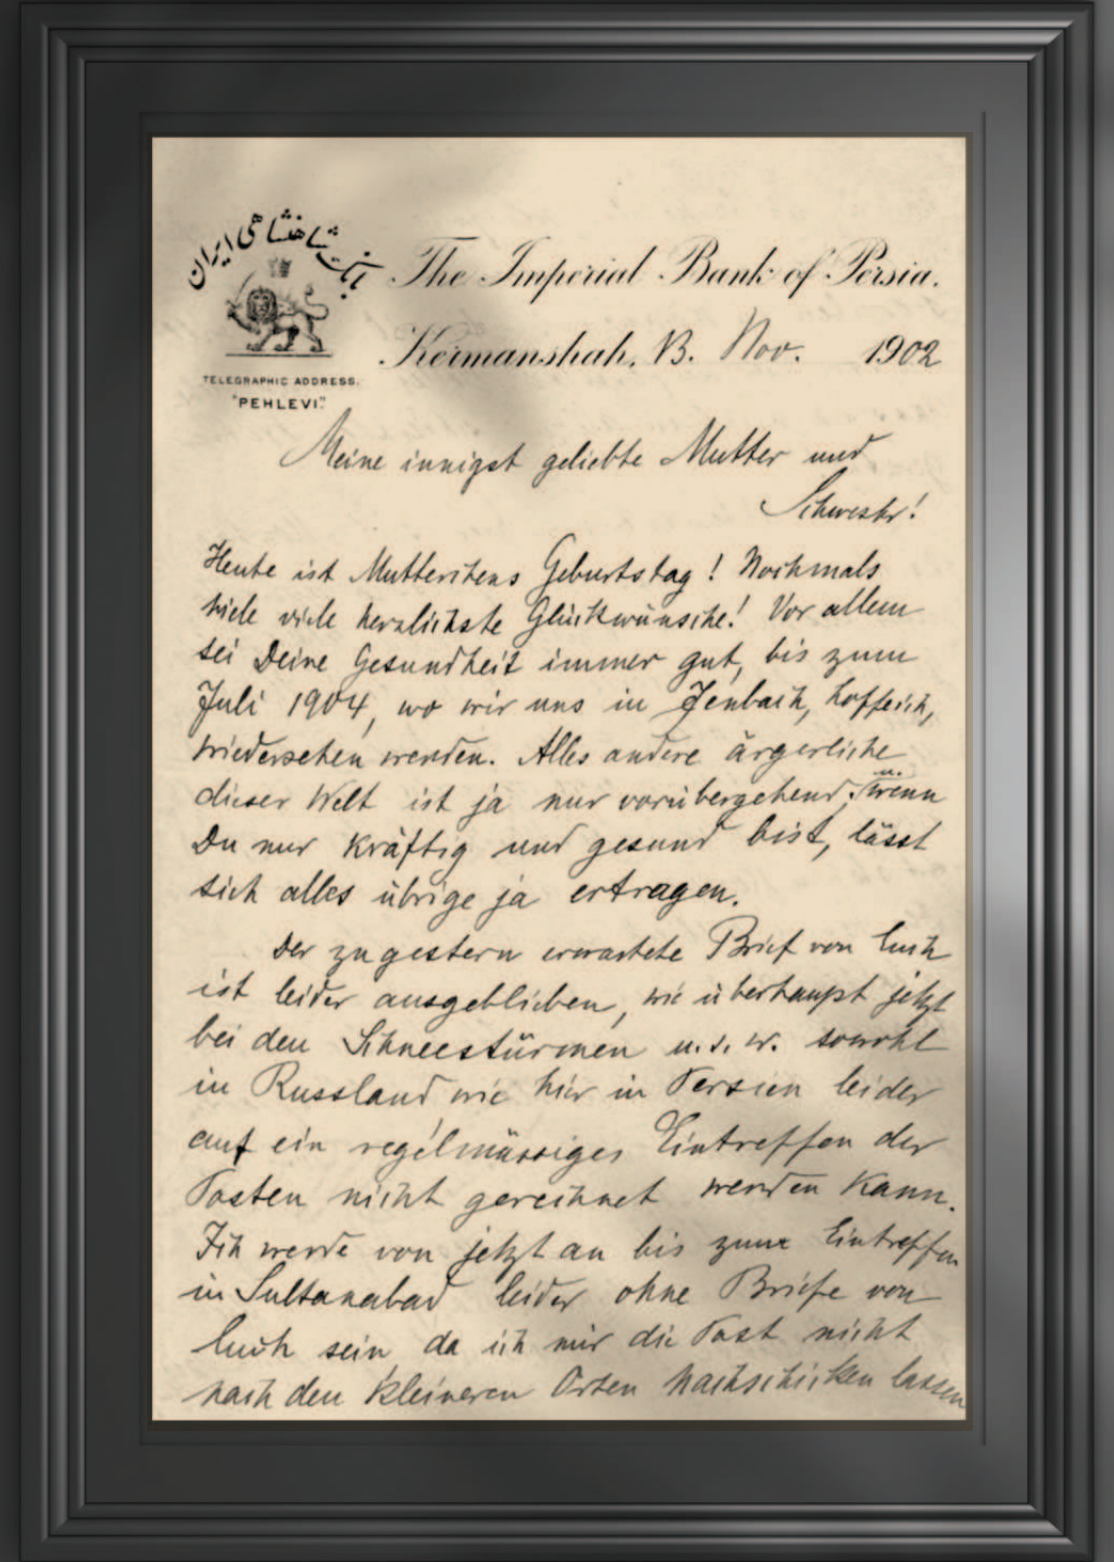 بانک شاهنشاهی ایران
The Imperial Bank of Persia.
Kermanshah, 13. Nov. 1902
TELEGRAPHIC ADDRESS.
"PEHLEVI."
Meine innigst geliebte Mutter und
Schwester!
Heute ist Mutterchens Geburtstag! Nochmals
viele viele herzlichste Glückwünsche! Vor allem
sei Deine Gesundheit immer gut, bis zum
Juli 1904, wo wir uns in Jenbach, hoffich,
wiedersehen werden. Alles andere ärgerliche
dieser Welt ist ja nur vorübergehend, u. wenn
Du nur kräftig und gesund bist, lässt
sich alles übrige ja ertragen.
Der zu gestern erwartete Brief von Euch
ist leider ausgeblieben, wie überhaupt jetzt
bei den Schneestürmen u. s. w. sowohl
in Russland wie hier in Persien leider
auf ein regelmässiges Eintreffen der
Posten nicht gerechnet werden kann.
Ich werde von jetzt an bis zum Eintreffen
in Sultanabad leider ohne Briefe von
Euch sein, da ich mir die Post nicht
nach den kleineren Orten nachschicken lassen